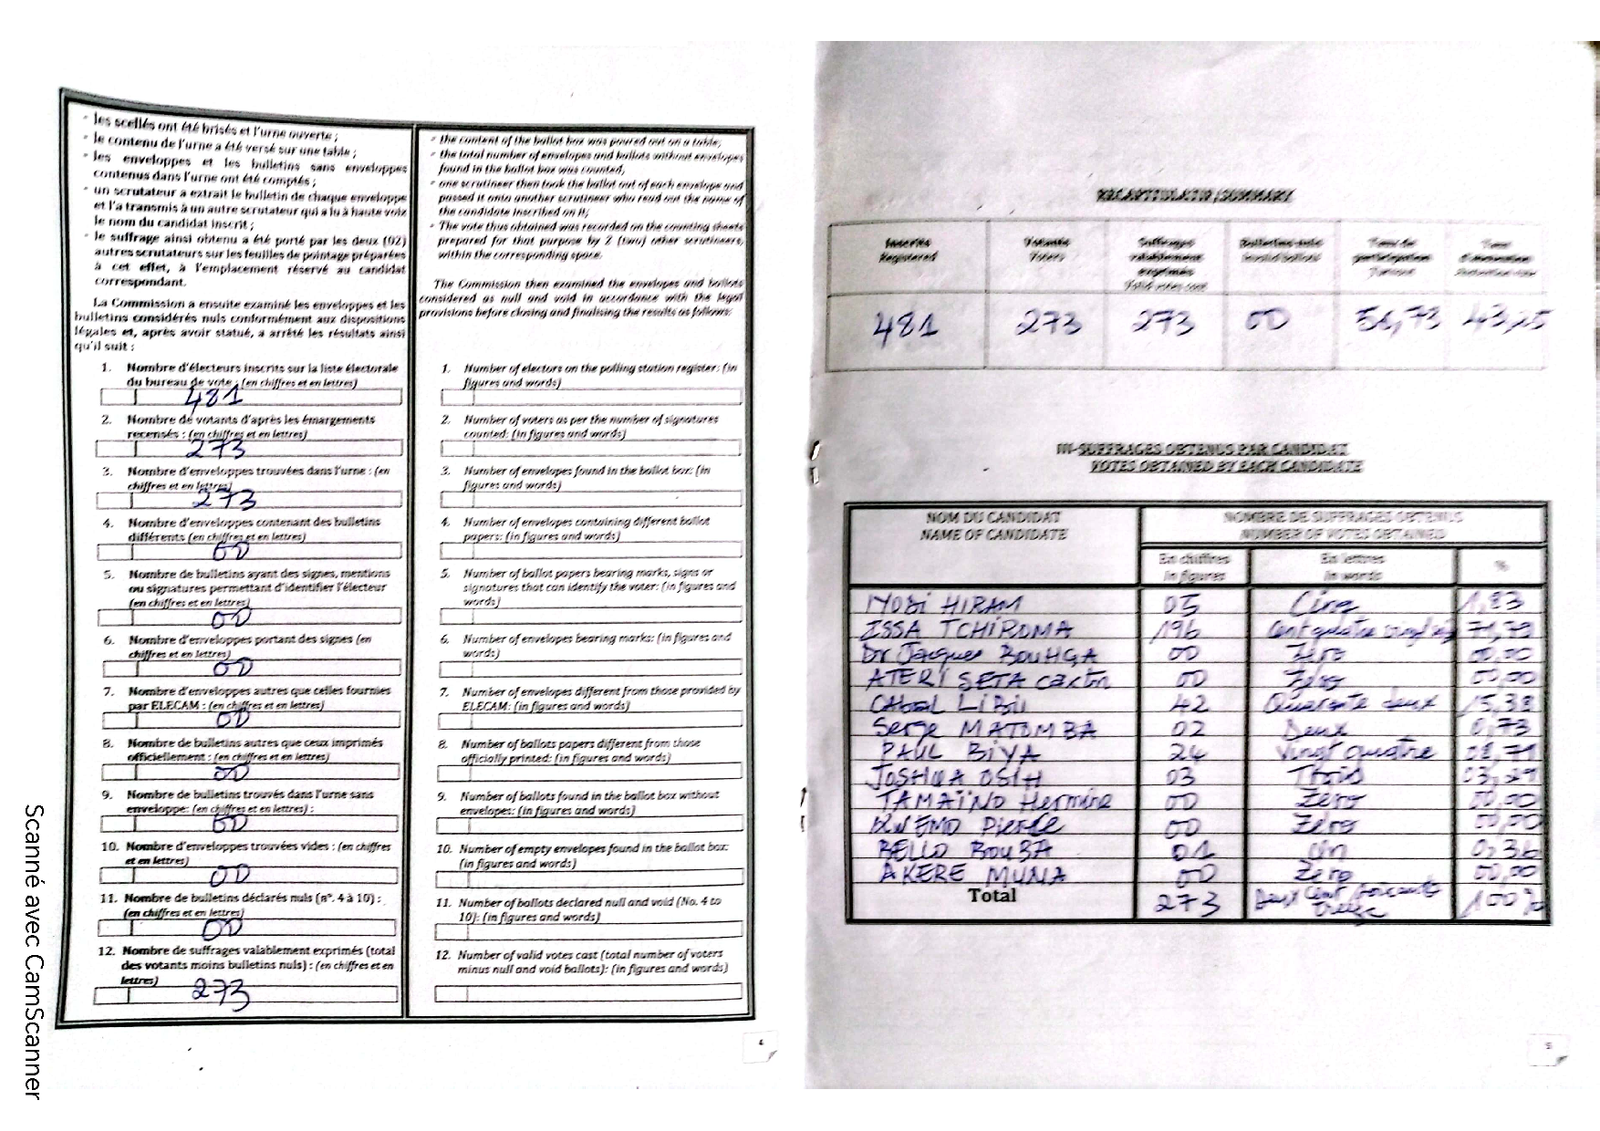 - les scellés ont été brisés et l'urne ouverte ;
- le contenu de l'urne a été versé sur une table ;
- les enveloppes et les bulletins sans enveloppes
contenus dans l'urne ont été comptés ;
- un scrutateur a extrait le bulletin de chaque enveloppe
et l'a transmis à un autre scrutateur qui a lu à haute voix
le nom du candidat inscrit ;
- le suffrage ainsi obtenu a été porté par les deux (02)
autres scrutateurs sur les feuilles de pointage préparées
à cet effet, à l'emplacement réservé au candidat
correspondant.
La Commission a ensuite examiné les enveloppes et les
bulletins considérés nuls conformément aux dispositions
légales et, après avoir statué, a arrêté les résultats ainsi
qu'il suit :
1. Nombre d'électeurs inscrits sur la liste électorale
du bureau de vote : (en chiffres et en lettres)
481
2. Nombre de votants d'après les émargements
recensés : (en chiffres et en lettres)
273
3. Nombre d'enveloppes trouvées dans l'urne : (en
chiffres et en lettres)
273
4. Nombre d'enveloppes contenant des bulletins
différents (en chiffres et en lettres)
00
5. Nombre de bulletins ayant des signes, mentions
ou signatures permettant d'identifier l'électeur
(en chiffres et en lettres)
00
6. Nombre d'enveloppes portant des signes (en
chiffres et en lettres)
00
7. Nombre d'enveloppes autres que celles fournies
par ELECAM : (en chiffres et en lettres)
00
8. Nombre de bulletins autres que ceux imprimés
officiellement : (en chiffres et en lettres)
00
9. Nombre de bulletins trouvés dans l'urne sans
enveloppe: (en chiffres et en lettres) :
00
10. Nombre d'enveloppes trouvées vides : (en chiffres
et en lettres)
00
11. Nombre de bulletins déclarés nuls (n°. 4 à 10) :
(en chiffres et en lettres)
00
12. Nombre de suffrages valablement exprimés (total
des votants moins bulletins nuls) : (en chiffres et en
lettres)
273
- the content of the ballot box was poured out on a table;
- the total number of envelopes and ballots without envelopes
found in the ballot box was counted;
- one scrutineer then took the ballot out of each envelope and
passed it onto another scrutineer who read out the name of
the candidate inscribed on it;
- The vote thus obtained was recorded on the counting sheets
prepared for that purpose by 2 (two) other scrutineers,
within the corresponding space.
The Commission then examined the envelopes and ballots
considered as null and void in accordance with the legal
provisions before closing and finalising the results as follows:
1. Number of electors on the polling station register: (in
figures and words)
2. Number of voters as per the number of signatures
counted: (in figures and words)
3. Number of envelopes found in the ballot box: (in
figures and words)
4. Number of envelopes containing different ballot
papers: (in figures and words)
5. Number of ballot papers bearing marks, signs or
signatures that can identify the voter: (in figures and
words)
6. Number of envelopes bearing marks: (in figures and
words)
7. Number of envelopes different from those provided by
ELECAM: (in figures and words)
8. Number of ballots papers different from those
officially printed: (in figures and words)
9. Number of ballots found in the ballot box without
envelopes: (in figures and words)
10. Number of empty envelopes found in the ballot box:
(in figures and words)
11. Number of ballots declared null and void (No. 4 to
10): (in figures and words)
12. Number of valid votes cast (total number of voters
minus null and void ballots): (in figures and words)
4
Scanné avec CamScanner
RECAPITULATIF/SUMMARY
Inscrits Votants Suffrages valablement exprimés Bulletins nuls Taux de participation Taux
Registered Voters Valid votes cast Invalid ballots Turnout
481 273 273 00 43,25
III-SUFFRAGES OBTENUS PAR CANDIDAT
VOTES OBTAINED BY EACH CANDIDATE
NOM DU CANDIDAT NOMBRE DE SUFFRAGES OBTENUS
NAME OF CANDIDATE NUMBER OF VOTES OBTAINED
En chiffres En lettres %
In figures In words
IYODI HIRAM 05 Cinq 1,83
ISSA TCHIROMA 196 Cent quatre vingt 71,79
Dr Jacques BOUHGA 00 Zéro 00,00
ATEKI SETA Caxton 00 Zéro 00,00
Cabral LIBII 42 Quarante deux 15,38
Serge MATOMBA 02 Deux 0,73
PAUL BIYA 24 Vingt quatre 08,79
JOSHUA OSIH 03 Trois
TAMAÏNO Hermine 00 Zéro 00,00
KWEMO Pierre 00 Zéro 00,00
BELLO BOUBA 01 Un 0,36
AKERE MUNA 00 Zéro 00,00
Total 273 Deux Cent soixante treize 100%
5